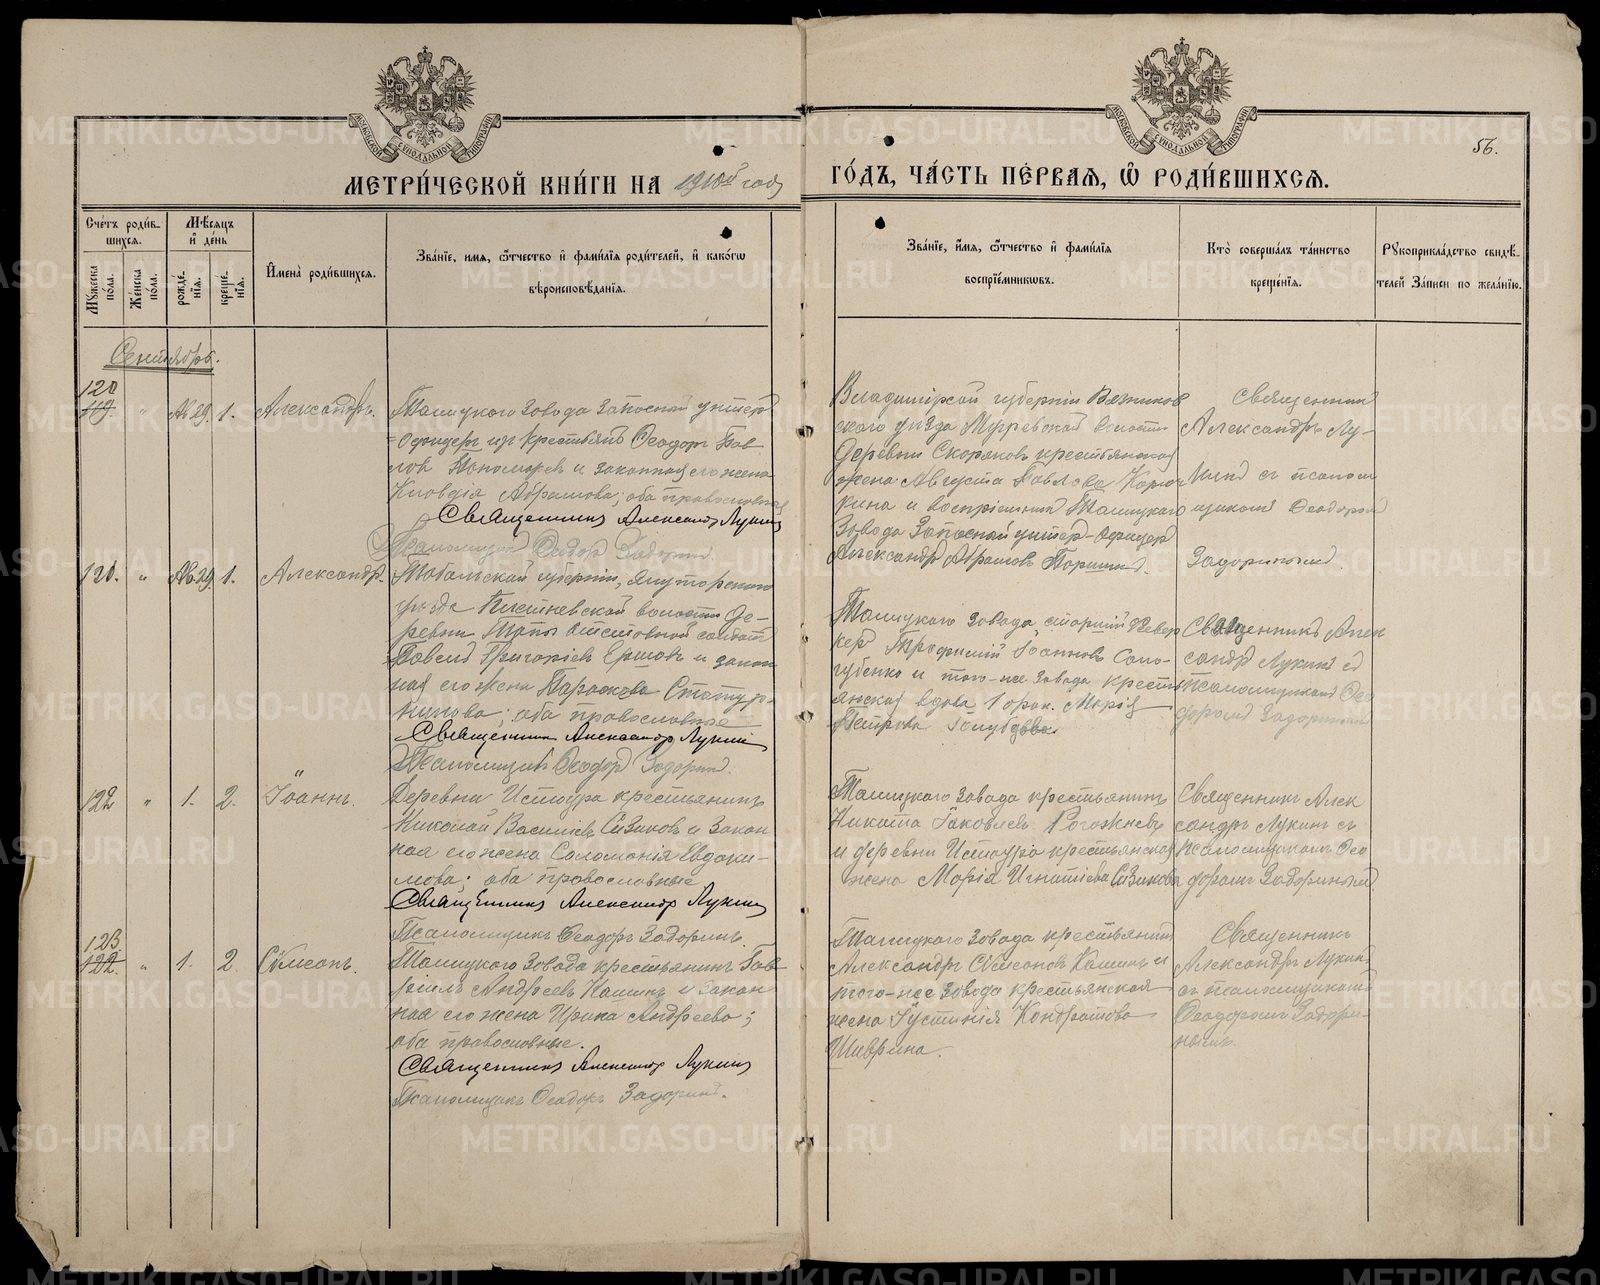 МЕТРИ́ЧЕСКОЙ КНИ́ГИ НА 1910й годъ
ГО́ДЪ, ЧА́СТЬ ПЕ́РВАЯ, Ѡ҆ РОДИ́ВШИХСЯ.
56.
Сче́тъ роди́в-
шихся.
Мѣ́сяцъ
и҆ де́нь
Мꙋжеска
по́ла.
Же́нска
по́ла.
рожде́-
нїя.
креще́-
нїя.
И҆мена̀ роди́вшихся.
Зва́нїе, имя, ѻ҆́тчество и҆ фами́лїя роди́телей, и҆ како́гѡ
вѣроисповѣ́данїя.
Зва́нїе, и҆́мя, ѻ҆́тчество и҆ фами́лїя
воспрїе́мникѡвъ.
Кто̀ соверша́лъ та́инство
креще́нїя.
Рꙋкоприкла́дство свидѣ́-
телей за́писи по жела́нїю.
Сентябрь.
120
119. " Ав 29. 1. Александръ.
Талицкаго Завода Запасный унтеръ
-офицеръ изъ крестьянъ Ѳеодоръ Пав
ловъ Пономаревъ и законная его жена
Клавдія Абрамова; оба православные
Священникъ Александръ Лукинъ
Псаломщикъ Ѳеодоръ Задоринъ.
Владимірской губерніи Вязников
скаго уѣзда волости
Деревни крестьянская
жена Августа Павлова
кина и воспріемникъ Талицкаго
Завода Запасный унтеръ-офицеръ
Александръ Абрамовъ Паршинъ.
Священникъ
Александръ Лу-
кинъ съ псалом
щикомъ Ѳеодоромъ
Задоринымъ.
121. " Ав 29. 1. Александръ.
Тобольской губерніи, Ялуторскаго
уѣзда волости де-
ревни отставной солдатъ
Павелъ Григоріевъ Ершовъ и закон
ная его жена Параскева
; оба православные
Священникъ Александръ Лукинъ
Псаломщикъ Ѳеодоръ Задоринъ.
Талицкаго Завода старшій
Трофимій Іоанновъ Соло-
губенко и того-же Завода кресть
янская вдова Марія
Петрова Голубцова.
Священникъ Алек
сандръ Лукинъ съ
псаломщикомъ Ѳео
доромъ Задоринымъ
122 " 1. 2. Іоаннъ.
Деревни Истоура крестьянинъ
Николай Василіевъ Сизиковъ и закон
ная его жена Соломонія Евдоки-
мова; оба православные
Священникъ Александръ Лукинъ
Псаломщикъ Ѳеодоръ Задоринъ.
Талицкаго Завода крестьянинъ
Никита Іаковлевъ Рогожневъ
и деревни Истоура крестьянская
жена Марія Игнатіева Сизикова
Священникъ Алек
сандръ Лукинъ съ
псаломщикомъ Ѳео
доромъ Задоринымъ
123.
122. " 1. 2. Сѵмеонъ.
Талицкаго Завода крестьянинъ Гав-
ріилъ Андреевъ Кашинъ и закон
ная его жена Ирина Андреева;
оба православные.
Священникъ Александръ Лукинъ
Псаломщикъ Ѳеодоръ Задоринъ.
Талицкаго Завода крестьянинъ
Александръ Сѵмеоновъ Кашинъ и
того-же Завода крестьянская
жена Іустинія Кондратова
Шаврина.
Священникъ
Александръ Лукинъ
съ псаломщикомъ
Ѳеодоромъ Задори-
нымъ.
METRIKI.GASO-URAL.RU